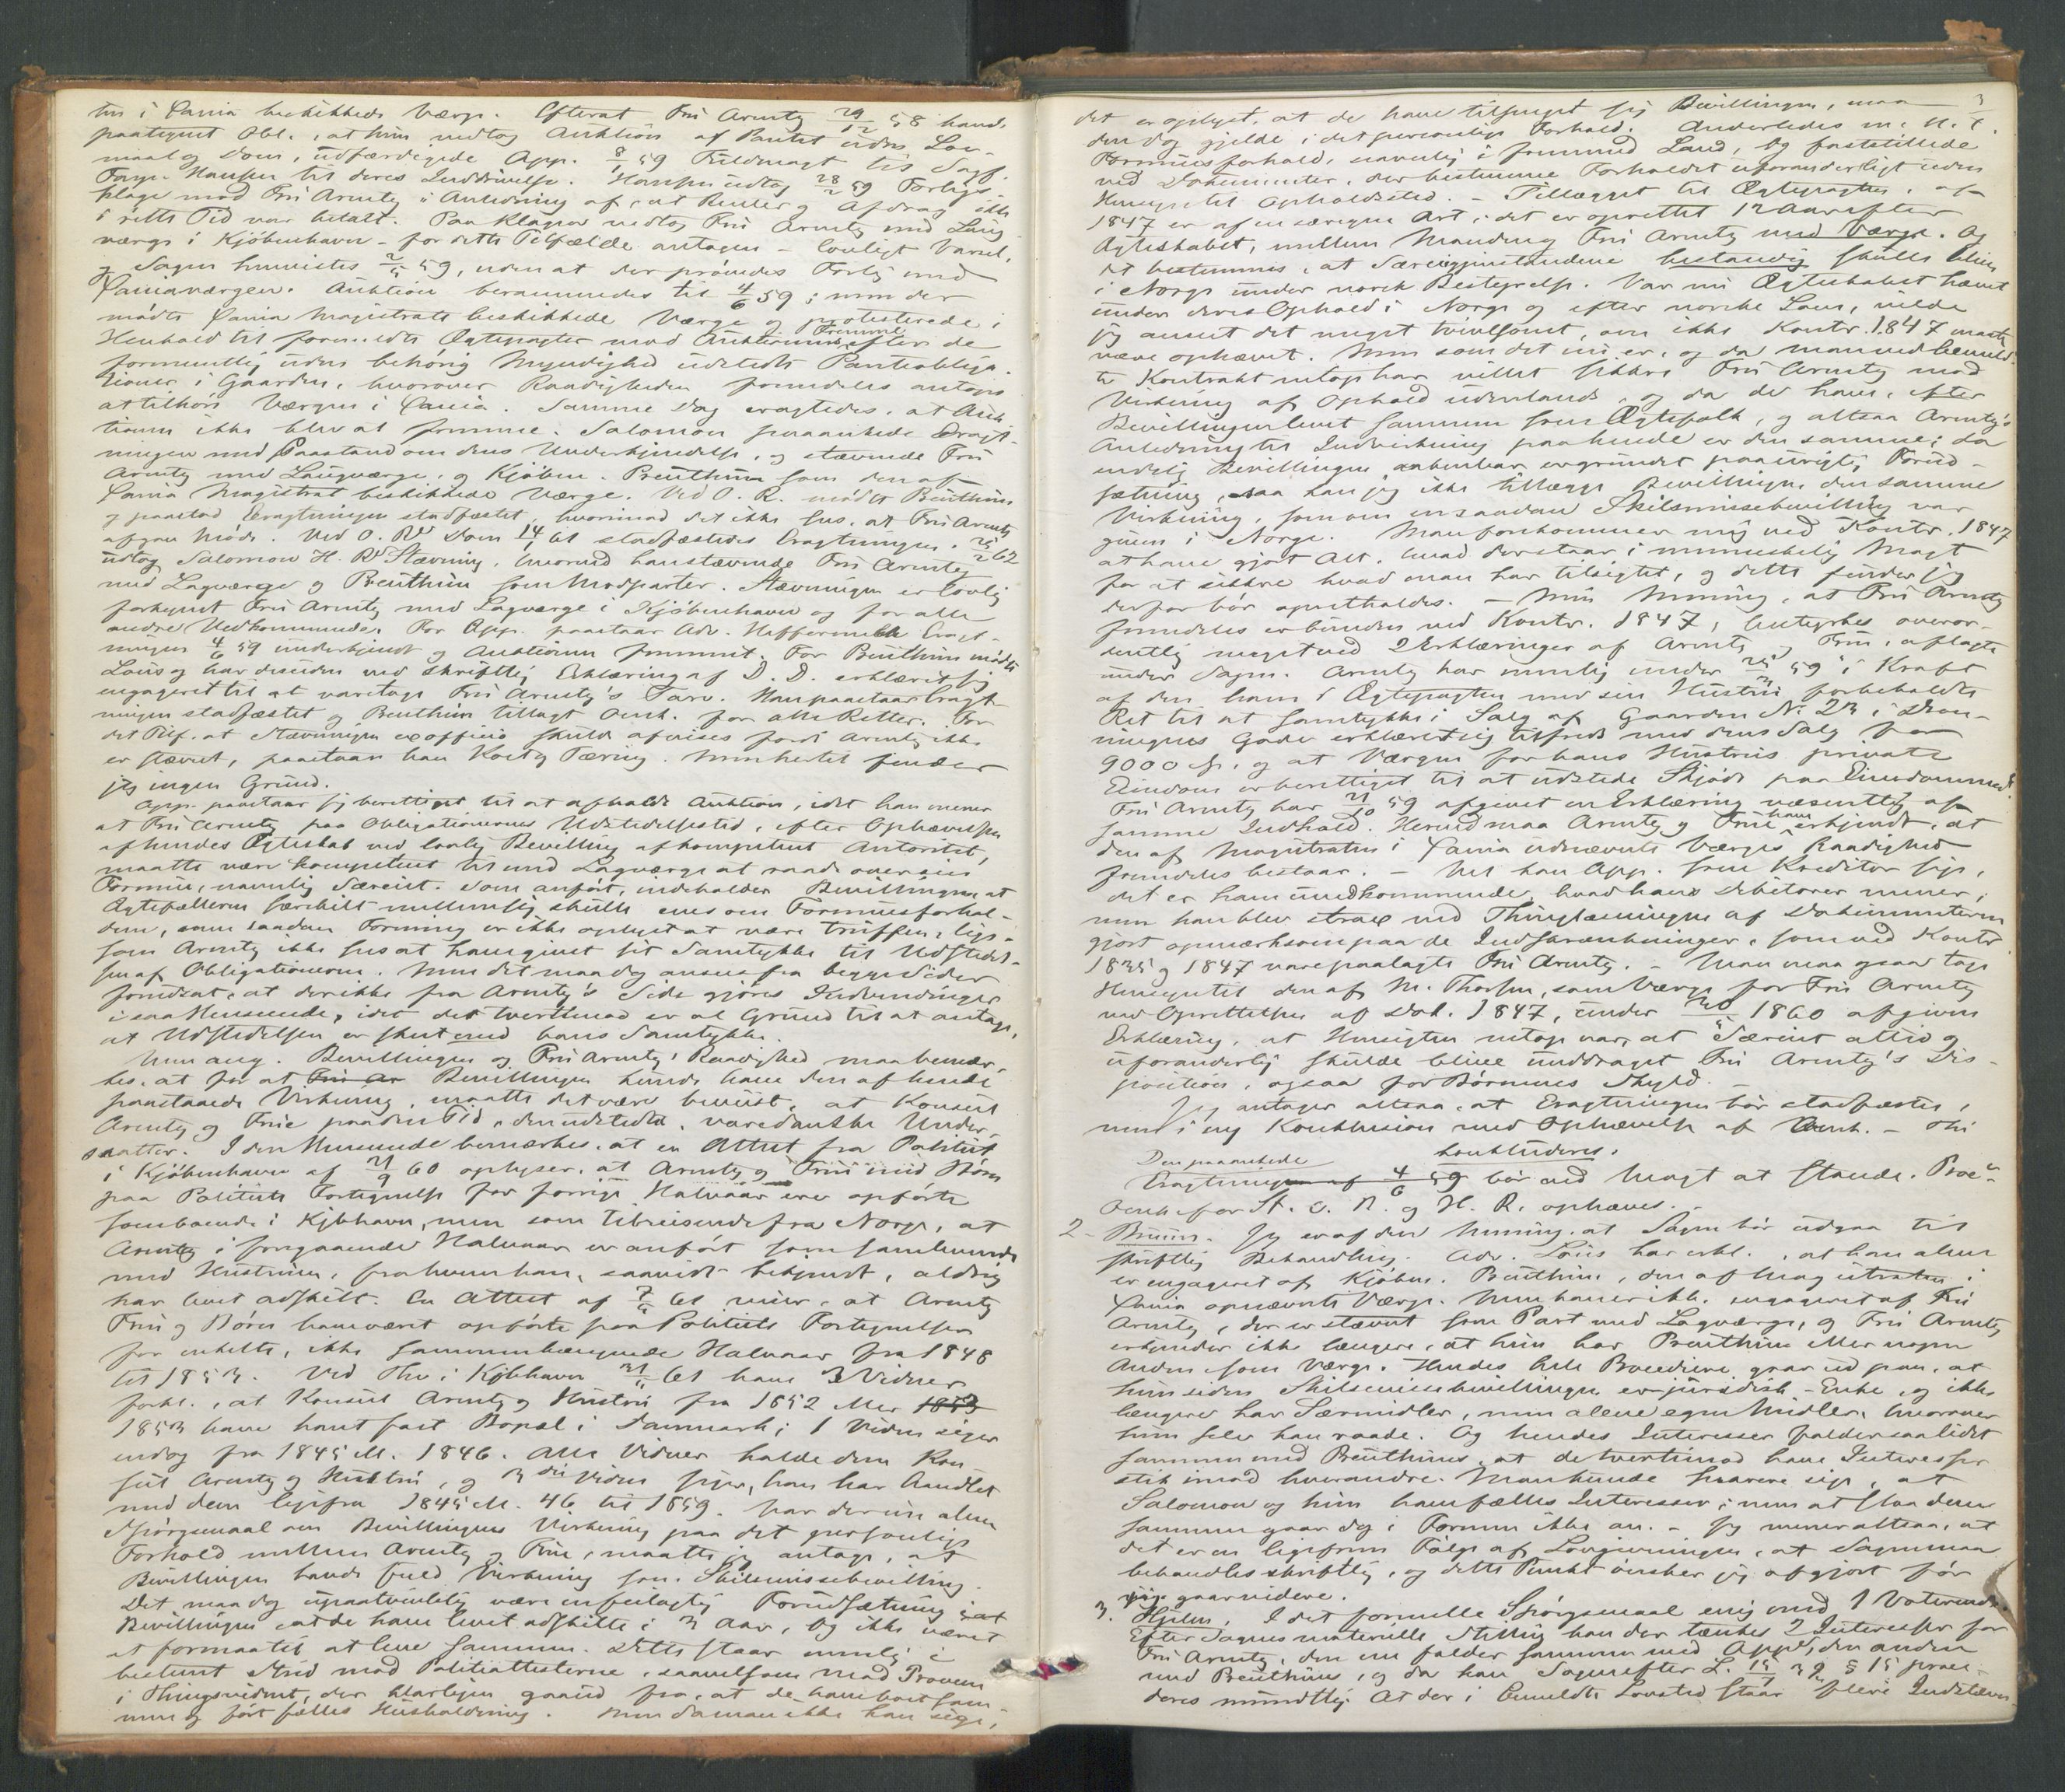 ten i Xania beskikkede Værge. Efterat Fru Arentz 29/12 58 havde
paategnet Obl., at hun vedtog Auktion af Pantet uden Lov-
maal og Dom, udfærdigede App. 8/1 59 Fuldmagt til Sagf.
Hansen til deres Inddrivelse. Hansen udtog 28/2 59 Forligs-
klage mod Fru Arentz i Anledning af, at Renter og Afdrag ikke
i rette Tid var betalt. Paa Klagen vedtog Fru Arentz med Laug-
værge i Kjöbenhavn – for dette Tilfælde antagen – lovligt Varsel,
og Sagen henvistes 2/5 59, uden at der prövedes Forlig med
Xaniaværgen. Auktion berammedes til 4/6 59; men der
mödte Xania Magistrats beskikkede Værge og protesterede i
Henhold til formeldte Ægtepagter mod Auktionens Fremme efter de
formentlig uden behörig Myndighed udstedte Pantobliga-
tioner i Gaarden, hvorover Raadigheden fremdeles antoges
at tilhöre Værgen i Xania. Samme Dag eragtedes, at Auk-
tionen ikke blev at fremme. Salomon paaankede Eragt-
ningen med Paastand om dens Underkjendelse, og stævnede Fru
Arentz med Laugværge, og Kjöbm. Preuthun som den af
Xania Magistrat beskikkede Værge. Ved O. R. mödte Preuthun
og paastod Eragtningen stadfæstet, hvorimod det ikke sees, at Fru Arentz
afgav Möde. Ved O. Rs Dom 14/1 61 stadfæstedes Eragtningen. 25/2 62
udtog Salomon H. Rs Stævning, hvorved han stævnede Fru Arentz
med Lagværge og Preuthun som Modparter. Stævningen er lovlig
forkyndt Fru Arentz med Lagværge i Kjöbenhavn og for alle
andre Vedkommende. For App. paastaar Adv. Hefferm​ehl Eragt-
ningen 4/6 59 underkjendt og Auktionen fremmet. For Preuthun mödte
Lous og har desuden ved skriftlig Erklæring af D. D. erklæret sig
engageret til at varetage Fru Arentz's Tarv. Han paastaar Eragt-
ningen stadfæstet og Preuthun tillagt Omk. for alle Retter. For
det Tilf. at Stævningen ex officio skulde afvises fordi Arentz ikke
er stævnet, paastaar han Kost og Tæring. Men hertil finder
jeg ingen Grund.
App. paastaar sig berettiget til at afholde Auktion, idet han mener
at Fru Arentz paa Obligationernes Udstedelsestid, efter Ophævelsen
af hendes Ægteskab ved lovlig Bevilling af kompetent Autoritet,
maatte være kompetent til med Lagværge at raade over sin
Formue, navnlig Særeiet. Som anfört, indeholder Bevillingen at
Ægtefællerne særskilt mellem sig skulle enes om Formuesforhol-
dene, men saadan Forening er ikke oplyst at være truffen, lige-
som Arentz ikke sees at have givet sit Samtykke til Udstedel-
sen af Obligationerne. Men det maa dog ansees fra begge Sider
forudsat, at der ikke fra Arentz's Side gjöres Indvendinger
i saa Henseende, idet det tvertimod er al Grund til at antage,
at Udstedelsen er skeet med hans Samtykke.
Men ang. Bevillingen og Fru Arentz's Raadighed maa bemær-
kes, at for at Fru Ar Bevillingen kunde have den af hende
paastaaede Virkning, maatte det være beviist, at Konsul
Arentz og Frue paa den Tid, den udstedtes, vare danske Under-
saatter. I den Henseende bemærkes, at en Attest fra Politiet
i Kjöbenhavn af 21/9 60 oplyser, at Arentz og Frue med Börn
paa Politiets Fortegnelse for forrige Halvaar ere opförte
som boende i Kjbhavn, men som tilreisende fra Norge, at
Arentz i foregaaende Halvaar er anfört som samboende
med Hustruen, fra hvem han, saavidt bekjendt, aldrig
har levet adskilt. En Attest af 7/5 61 viser, at Arentz
Frue og Börn have været opförte paa Politiets Fortegnelser
for enkelte, ikke sammenhængende Halvaar fra 1848
til 1853. Ved Thv. i Kjbhavn 31/5 61 have 3 Vidner
forkl., at Konsul Arentz og Hustru fra 1852 eller 1853
1853 have havt fast Bopæl i Danmark; 1 Vidne siger
endog fra 1845 ell. 1846. Alle Vidner kalde dem Kon-
sul Arentz og Hustru, og 3die Vidne siger, han har handlet
med dem ligefra 1845 ell. 46 til 1859. Var der nu alene
Spörgsmaal om Bevillingens Virkning paa det personlige
Forhold mellem Arentz og Frue, maatte jeg antage, at
Bevillingen havde fuld Virkning som Skilsmissebevilling.
Det maa dog upaatvivlelig være en feilagtig Forudsætning i
Bevillingen, at de have levet adskilte i 3 Aar, og ikke været
at formaa til at leve sammen. Dette staar nemlig i
bestemt Strid med Politiattesterne, saavelsom med Prove​n
i Thingsvidnet, der klarligen gaa ud fra, at de have boet sam-
men og fört fælles Huusholdning. Men da man ikke kan sige,
3
det er oplyst, at de have tilsneget sig Bevillingen, maa
den dog gjelde i det personlige Forhold. Anderledes m. H. t.
Formuesforhold, navnlig i fremmed Land, og fastsatte
ved Dokumenter, der bestemme Forholdet uforanderligt uden
Hensyn til Opholdssted. – Tillægget til Ægtepagten, af
1847 er af en særegen Art; det er oprettet 12 Aar efter
Ægteskabet, mellem Manden og Fru Arentz med Værge. Og
det bestemmes, at Særeiegjenstandene bestandig skulle blive
i Norge under norsk Bestyrelse. Var nu Ægteskabet hævet
under deres Ophold i Norge og efter norske Love, vilde
jeg anseet det meget tvivlsomt, om ikke Kontr. 1847 maatte
være ophævet. Men som det nu er, og da man ved bemeld-
te Kontrakt netop har villet sikkre Fru Arentz mod
Virkning af Ophold udenlands, og da de have, efter
Bevillingen levet sammen som Ægtefolk, og altsaa Arentz's
Anledning til Indvirkning paa hende er den samme; da
endelig Bevillingen aabenbar er grundet paa urigtig Forud-
sætning, saa kan jeg ikke tillægge Bevillingen den samme
Virkning, som om en saadan Skilsmissebevilling var
given i Norge. Man forekommer mig ved Kontr. 1847
at have gjort Alt, hvad der staar i menneskelig Magt
for at sikkre hvad man har tilsigtet, og dette finder jeg
derfor bör opretholdes. – Min Mening, at Fru Arentz
fremdeles er bunden ved Kontr. 1847, bestyrkes overor-
dentlig meget ved 2 Erklæringer af Arentz og Frue, aflagte
under Sagen. Arentz har nemlig under 25/ 59 "i Kraft
af den ham i Ægtepagten med sin Hustru forbeholdte
Ret til at samtykke i Salg af Gaarden No 23 i Dron-
ningens Gade erklæret sig tilfreds med dens Salg for
9000 Sp. og at Værgen for hans Hustrues private
Eiendom er berettiget til at udstede Skjöde paa Eiendommen".
Fru Arentz har 21/10 59 afgivet en Erklæring væsentlig af
samme Indhold. Herved maa Arentz og Frue have erkjendt, at
den af Magistraten i Xania udnævnte Værges Raadighed
fremdeles bestaar. – Vel kan App. som Kreditor sige,
det er ham uvedkommende, hvad hans Debitorer mener;
men han blev strax ved Thinglæsningen af Dokumenterne
gjort opmærksom paa de Indskrænkninger, som ved Kontr.
1835 og 1847 vare paalagte Fru Arentz. – Man maa ogsaa tage
Hensyn til den af M. Thorsen, som Værge for Fru Arentz
ved Oprettelsen af Dok. 1847, under 20/5 1860 afgivne
Erklæring, at Hensigten netop var, at Særeiet altid og
uforanderlig skulde blive unddraget Fru Arentz's Dis-
position, ogsaa for Börnenes Skyld. –
Jeg antager altsaa, at Eragtningen bör stadfæstes,
men i ny Konklusion med Ophævelse af Omk. – Thi
konkluderes:
Den paaankede
Eragtningen af 4/6 59 bör ved Magt at stande. Proc.s
Omk. for St. O. R. og H. R. ophæves.
2- Bruun. Jeg er af den Mening, at Sagen bör udgaa til
skriftlig Behandling. Adv. Lous har erkl., at han alene
er engageret af Kjöbm. Preuthun, den af Magistraten i
Xania opnævnte Værge. Men han er ikke engageret af Fru
Arentz, der er stævnt som Part med Lagværge, og Fru Arentz
erkjender ikke længere, at hun har Preuthun eller nogen
Anden som Værge. Hendes hele Procedure gaar ud paa, at
hun siden Skilsmissebevillingen er juridisk Enke, og ikke
længere har Særmidler, men alene egne Midler, hvorover
hun selv kan raade. Og hendes Interesser falder saalidt
sammen med Preuthuns, at de tvertimod have Interesser
stik imod hverandre. Man kunde snarere sige, at
Salomon og hun have fælles Interesser; men at slaa dem
sammen gaar dog i Formen ikke an. – Jeg mener altsaa, at
det er en ligefrem Fölge af Lovgivningen, at Sagen maa
behandles skriftlig, og dette Punkt önsker jeg afgjort för
jeg gaar videre.
3. Hjelm. I det formelle Spörgsmaal enig med 1 Voterende.
Efter Sagens materielle Stilling kan der tænkes 2 Interesser for
Fru Arentz, den ene falder sammen med App.s, den anden
med Preuthuns, og da kan Sagen efter L. § 15 proce-
deres mundtlig. At der i bemeldte Lovsted staar flere Indstævn-